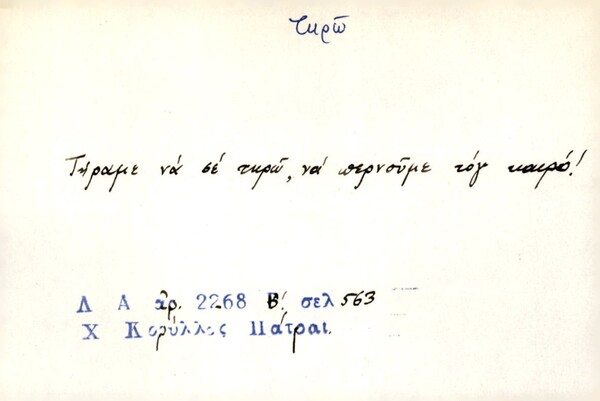 τηρῶ
Τήραμε νά σέ τηρῶ, νά περνοῦμε τόγ καιρό!
Λ Α ἀρ. 2268 Β! σελ 563
Χ Κορύλλος Πάτραι.